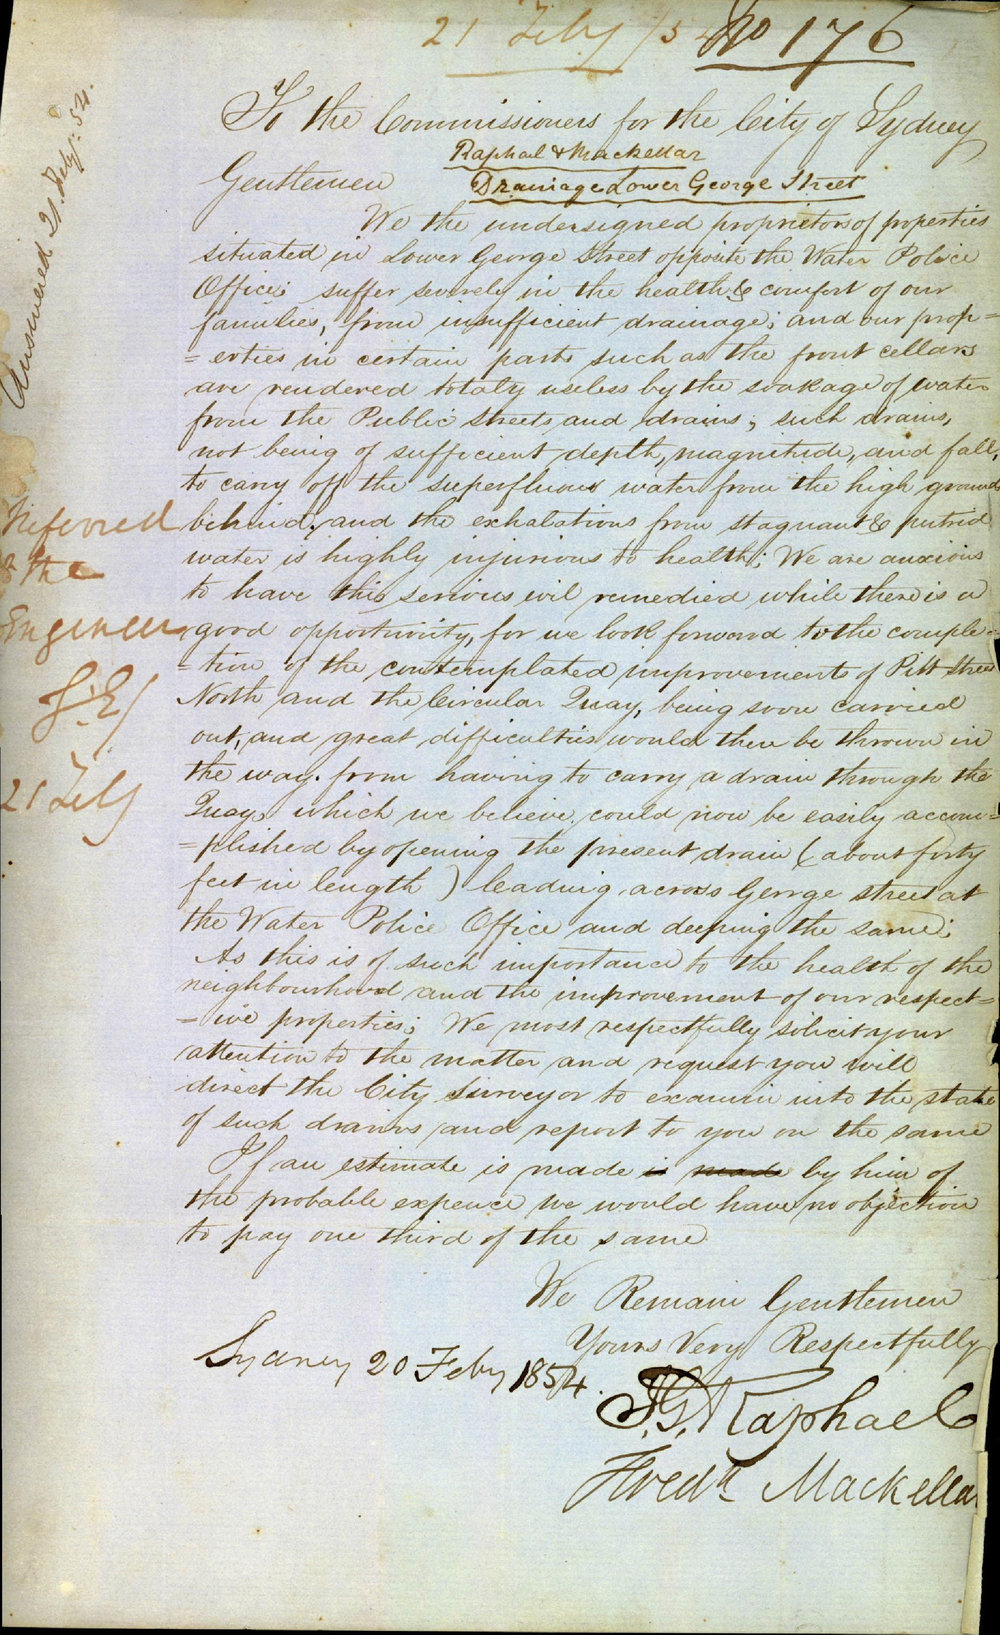 21 Feby /54 No 176
Answered 21 Feby: 54.
To the Commissioners for the City of Sydney
Raphael & Mackellar
Gentlemen Drainage Lower George Street
We the undersigned proprietors of properties
situated in Lower George Street opposite the Water Police
Office; suffer severely in the health & comfort of our
families, from insufficient drainage; and our prop=
=erties in certain parts such as the front cellars
are rendered totaly useless by the soakage of water
from the Public Streets and drains; such drains,
not being of sufficient depth, magnitude, and fall,
to carry off the superfluous water from the high ground
behind; and the exhalations from stagnant & putrid
water is highly injurious to health; We are anxious
to have this serious evil remedied while there is a
good opportunity, for we look forward to the comple=
=tion of the contemplated improvements of Pitt Street
North and the Circular Quay, being soon carried
out, and great difficulties would then be thrown in
the way. from having to carry a drain through the
Quay, which we believe could now be easily accom=
=plished by opening the present drain (about forty
feet in length) leading across George street at
the Water Police Office and deeping the same;
As this is of such importance to the health of the
neighbourhood and the improvement of our respect=
=ive properties; We most respectfully solicit your
attention to the matter and request you will
direct the City Surveyor to examin into the state
of such drains and report to you on the same
If an estimate is made is made by him of
the probable expence we would have no objection
to pay one third of the same
We Remain Gentlemen
Yours Very Respectfully
Sydney 20 Feby 1854.
J.G. Raphael
Fredk Mackellar
Referred
to the
Engineer
G.E/
21 Feby